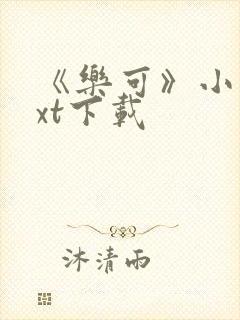 《樂可》小
xt下載
沐清雨